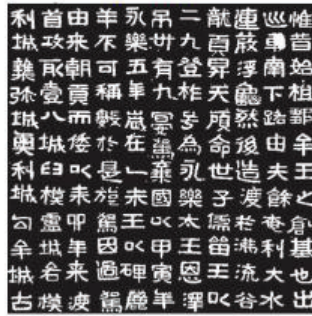 惟昔始祖鄒牟王之創基也出
巡車南下路由夫餘奄利大水
連葭浮龜然後造渡於沸流谷
龍頁昇天顧命世子儒留王以
二九登祚号為永樂太王恩澤
弔卅有九宴駕棄國以甲寅年
永樂五年歲在一未王以碑麗
羊不可稱數於是旋駕因過駕
由来朝貢而倭以耒卯年来渡
首攻取壹八城臼模盧城各模
利城雜弥城奧利城勾牟城古